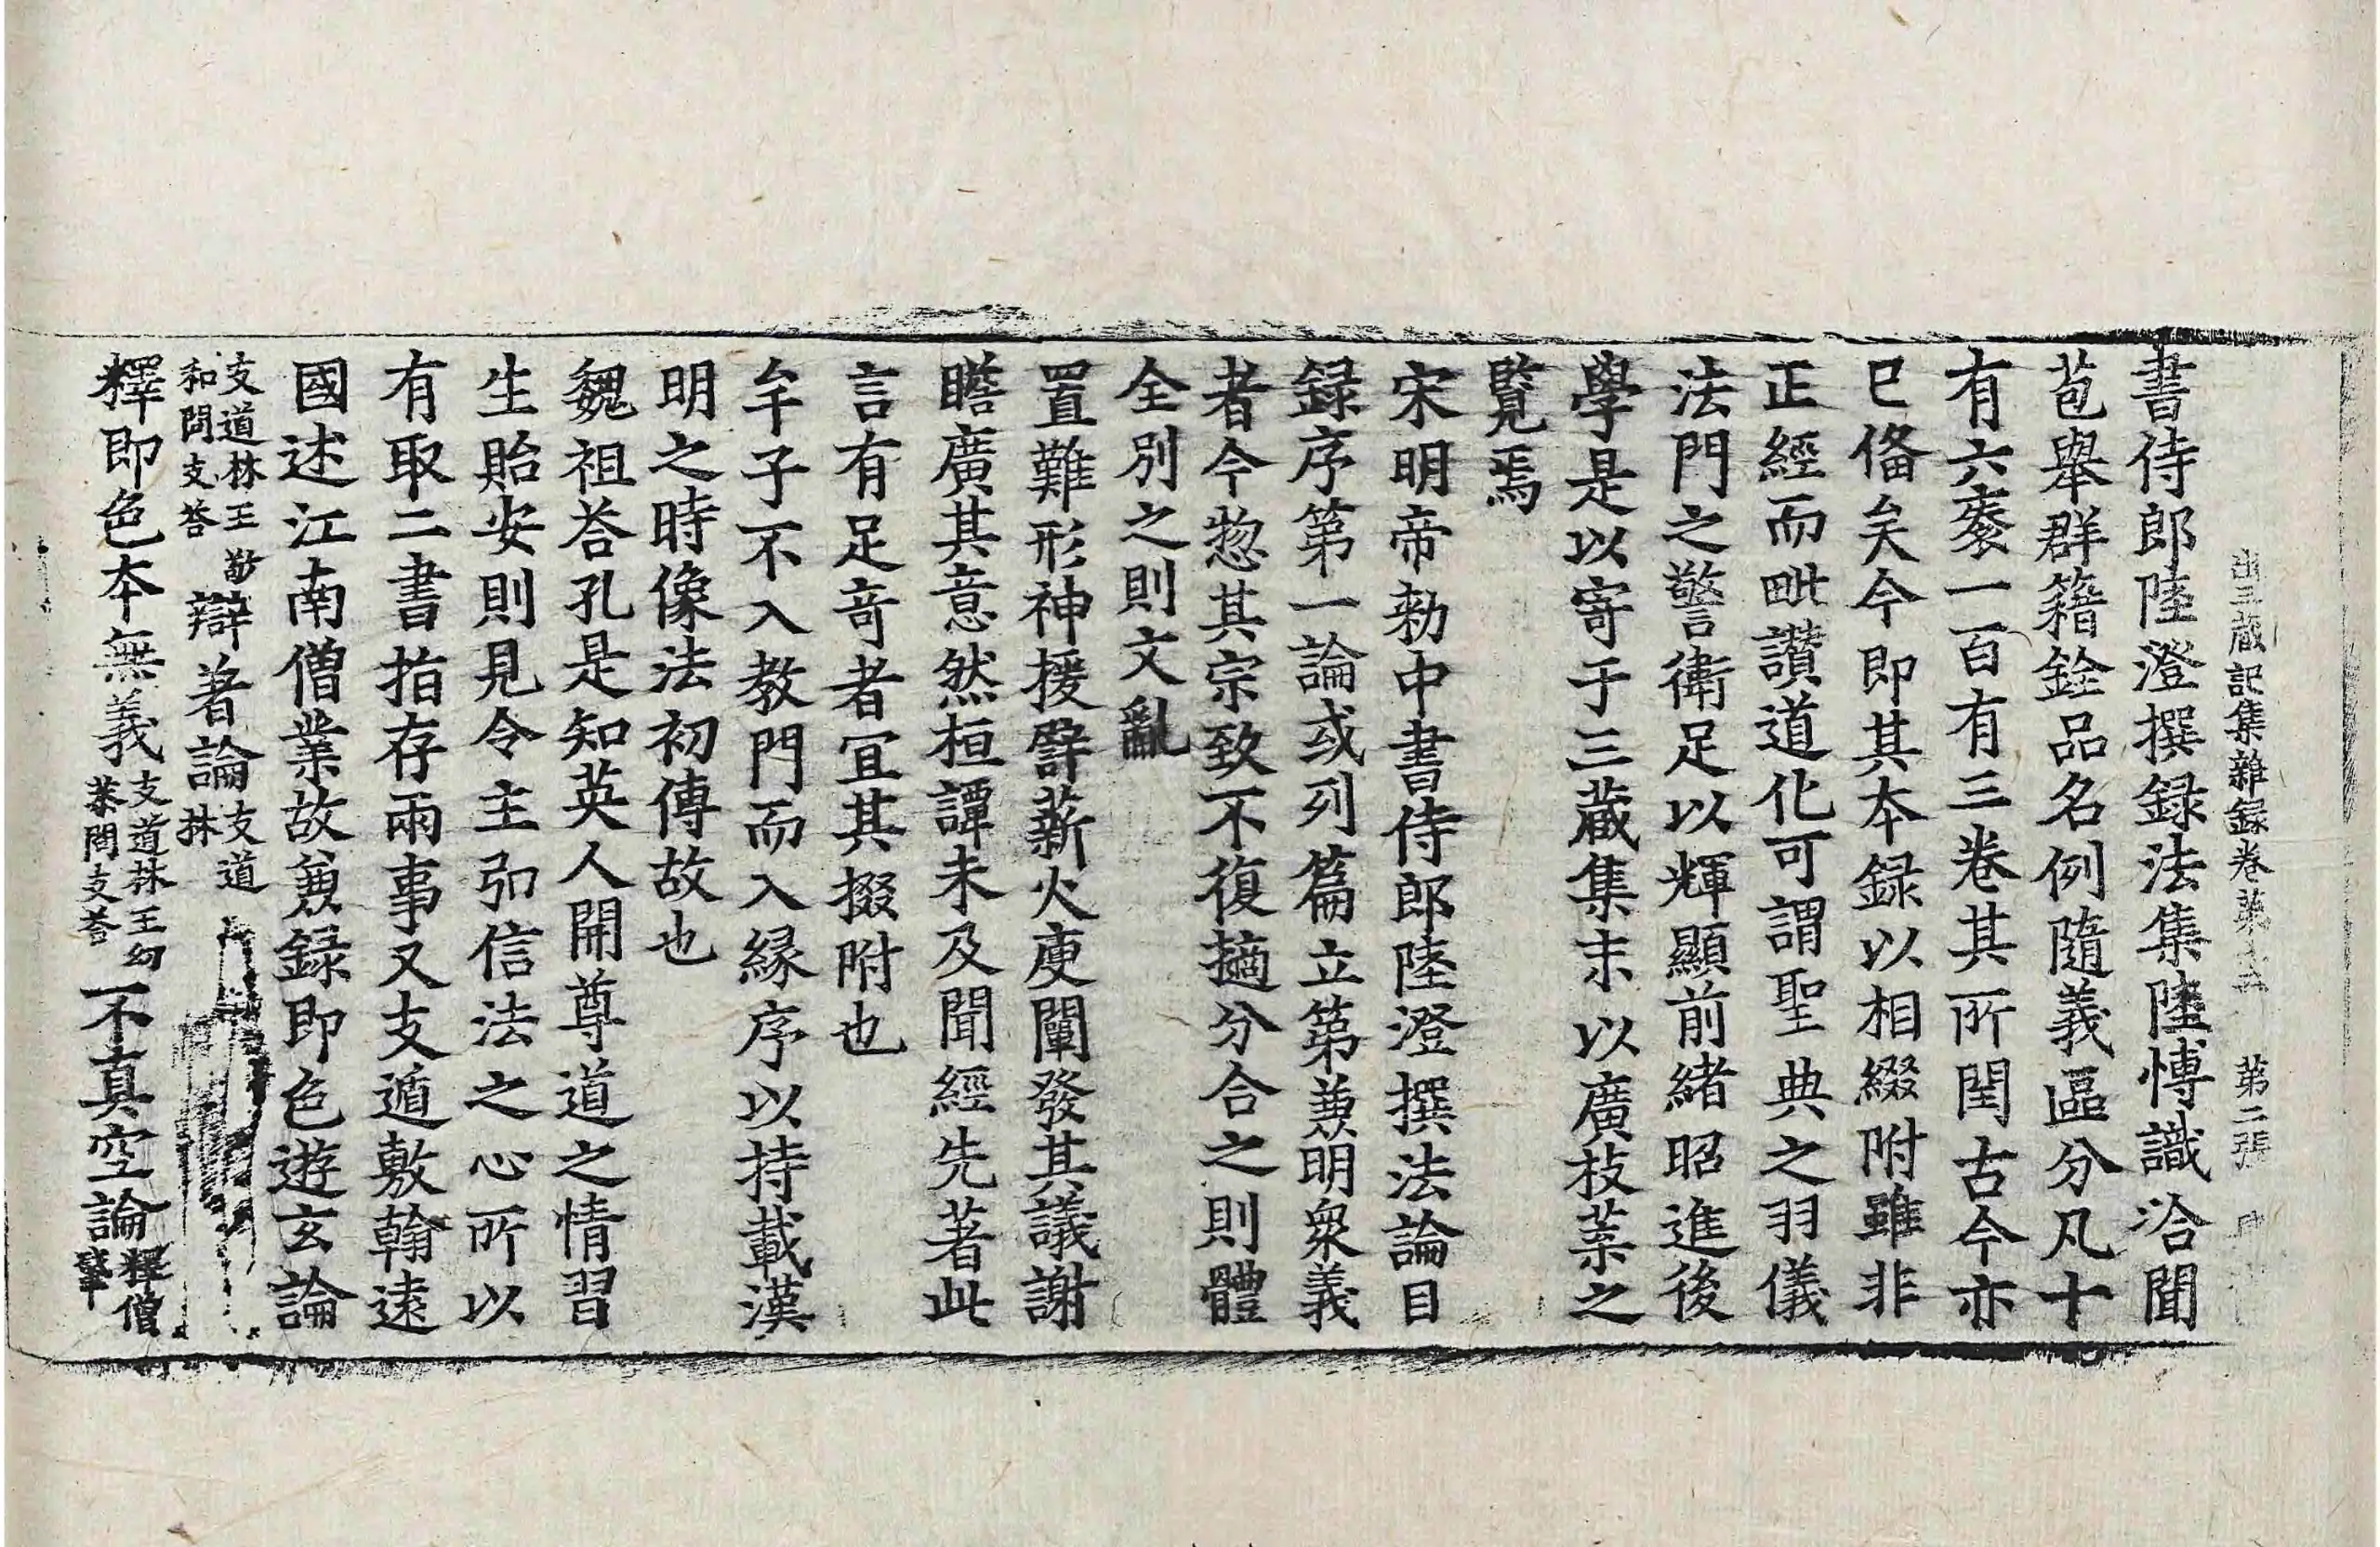 出三藏記集雜録卷第十二 第二張
書侍郎陸澄撰録法集陸愽識洽聞
苞舉群籍銓品名例隨義區分凡十
有六袠一百有三卷其所閱古今亦
已俻矣今即其本録以相綴附雖非
正經而毗讚道化可謂聖典之羽儀
法門之警衛足以輝顯前緒昭進後
學是以寄于三藏集末以廣枝葉之
覧焉
宋明帝勑中書侍郎陸澄撰法論目
録序第一論或列篇立第兼明衆義
者今惣其宗致不復擿分合之則體
全別之則文亂
置難形神援譬薪火庾闡發其議謝
瞻廣其意然桓譚未及聞經先著此
言有足竒者冝其掇附也
牟子不入教門而入縁序以持載漢
明之時像法初傳故也
魏祖荅孔是知英人開尊道之情習
生貽安則見令主弘信法之心所以
有取二書指存兩事又支遁敷翰遠
國述江南僧業故兼録即色遊玄論
支道林王敬
和問支荅 辯著論 支道
林
釋即色本無義 支道林王幼
恭問支荅 不真空論 釋僧
肇